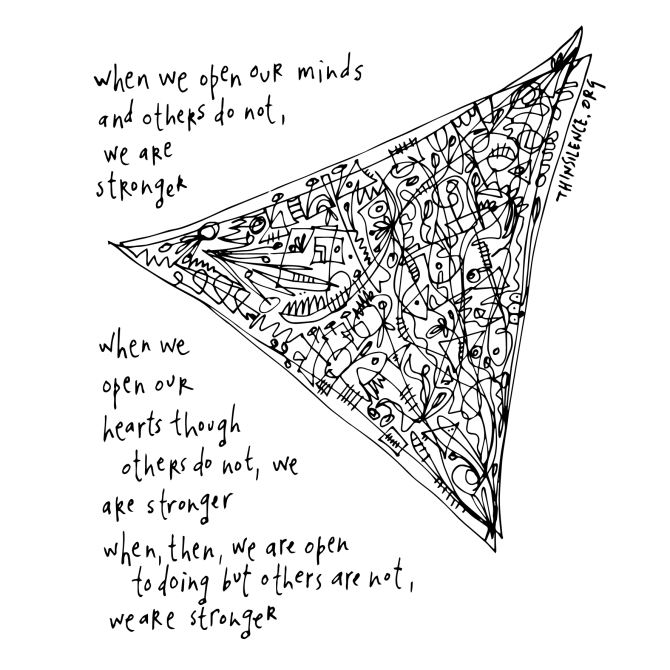 when we open our minds
and others do not,
we are
stronger
when we
open our
hearts though
others do not, we
are stronger
when, then, we are open
to doing but others are not,
we are stronger
THINSILENCE.ORG